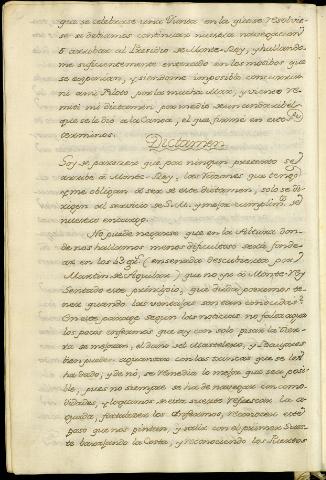 que se celebrase una Junta en la que se resolvie-
se si debamos continuar nuestra navegacion
ò arribar al Presidio de Monte-Rey, y hallando-
me suficientemente enterado en los motibos que
se exponian, y siendome imposible concurrir
ni à mi Piloto por la mucha Mar, y viento re-
mitì mi dictamen por medio de un andaribel
que se le diò a la Canoa, el que firmè en estos
terminos.
Dictamen
Soy de parecer que por ningun pretexto se
arribe à Monte-Rey, las razones que tengo
y me obligan al ser de este dictamen, solo se di-
rigen al servicio de S.M. y mejor cumplimto. de
nuestro encargo.
No puede negarse que en la Altura don-
de nos hallamos menos dificultoso serà fonde-
ar en los 43 gs. (ensenada descubierta por
Martin de Aguilar) que no yr à Monte-Rey
Sentado este principio, que duda podremos te-
ner quando las ventajas son tan conocidas?
En este parage segun las noticias no falta agua
los pocos enfermos que ay con solo pisar la tier-
ra se mejoran, el daño del Mastelero, y Baupres
bien pueden aguantar con las trincas que se les
ha dado, y de nò, se remedia lo mejor que sea posi-
ble, pues no siempre se ha de navegar con como-
didades, y logramos de esta suerte refrescar la a-
guada, fortalezer los Enfermos, reconocer este
paso que nos pintan, y salir con el primer Sues-
te barajando la Costa, y reconociendo los Puertos